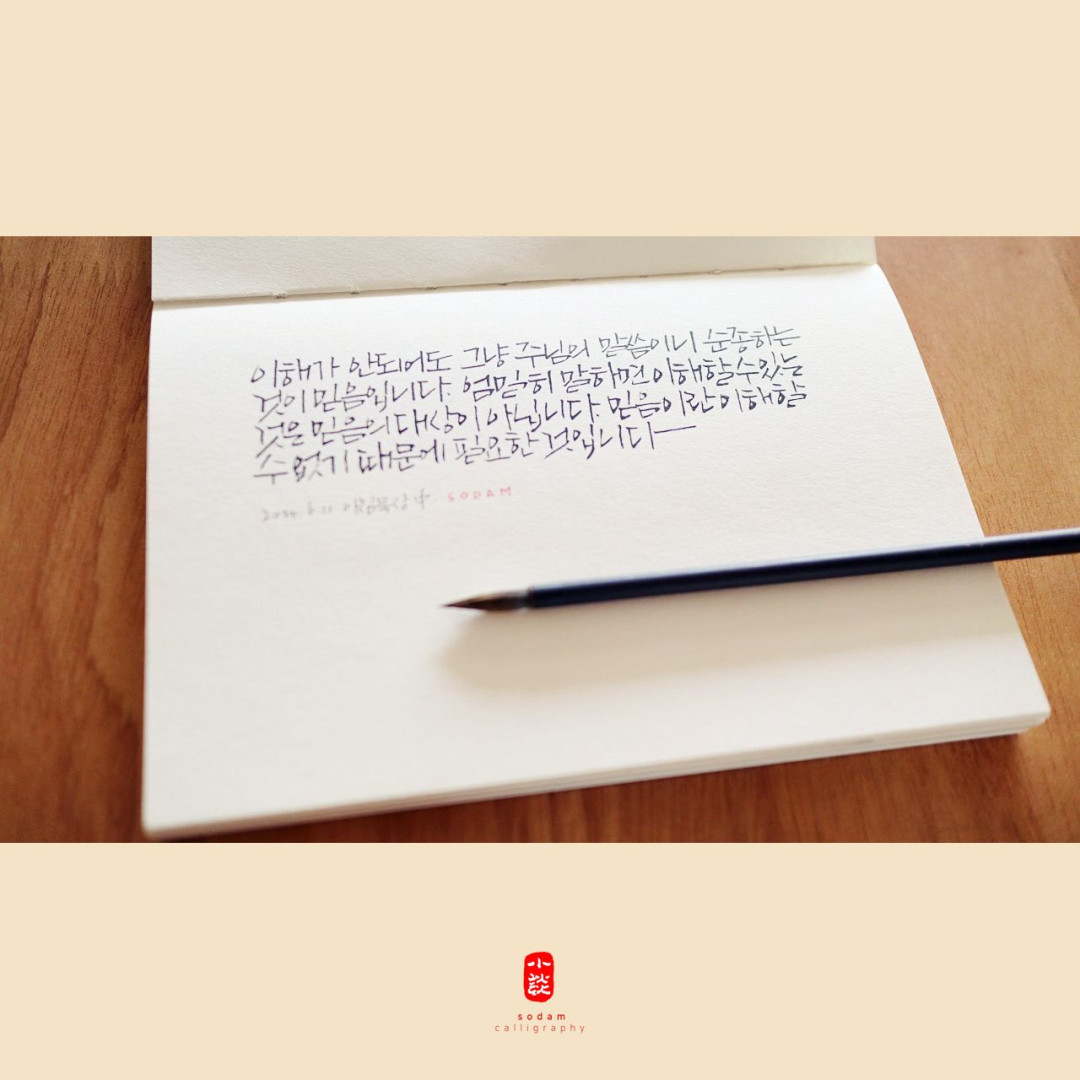 이해가 안되어도 그냥 주님의 말씀이니 순종하는
것이 믿음입니다. 엄밀히 말하면 이해할 수 있는
것은 믿음의 대상이 아닙니다. 믿음이란 이해할
수 없기 때문에 필요한 것입니다
中 SODAM
小
sodam
calligraphy